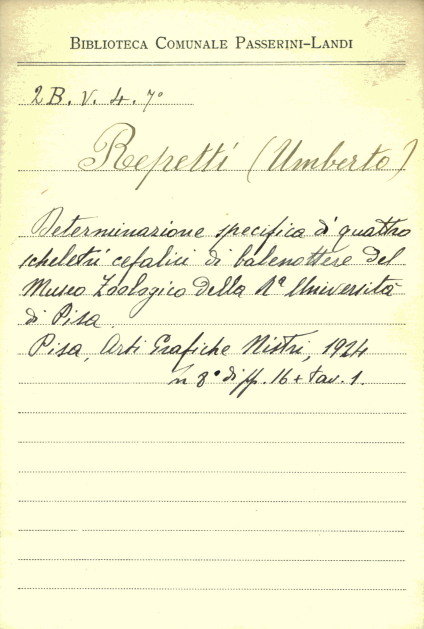 BIBLIOTECA COMUNALE PASSERINI-LANDI
2 B. V. 4. 7º
Repetti (Umberto)
Determinazione specifica di quattro
scheletri cefalici di balenottere del
Museo Zoologico della Rª Università
di Pisa.
Pisa, Arti Grafiche Nistri, 1924
in 8º di pp. 16 + tav. 1.